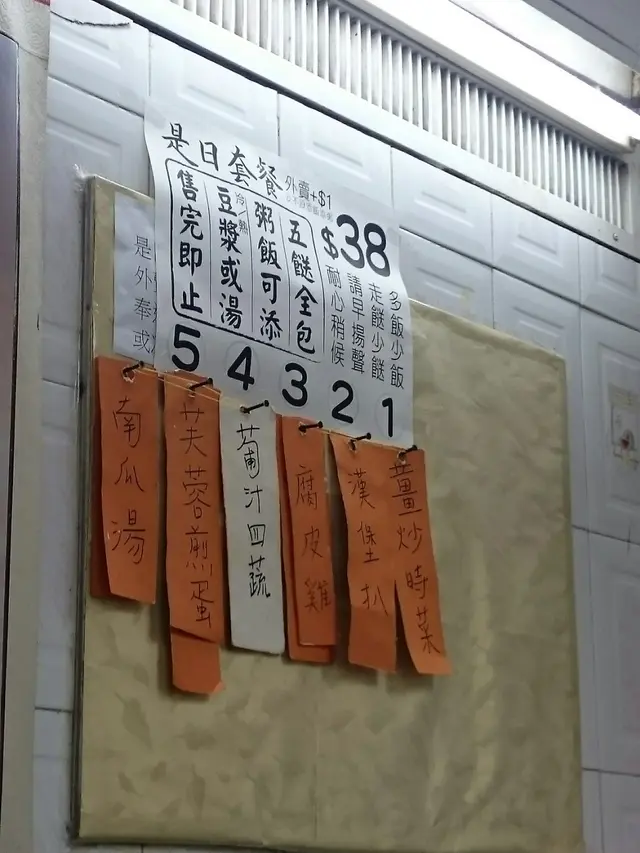 是日套餐
外賣+$1
$38
多飯少飯
走餸少餸
請早揚聲
耐心稍候
五餸全包
粥飯可添
冷/熱
豆漿或湯
售完即止
是
外
奉
或
5 4 3 2 1
薑炒時菜
漢堡扒
腐皮雞
葡汁四蔬
芙蓉煎蛋
南瓜湯